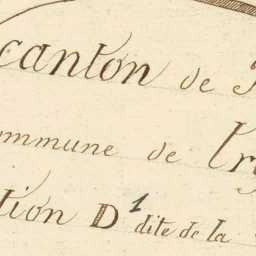 canton de
ommune de
tion D¹ dite de la